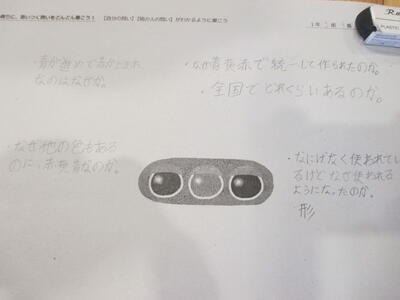 に、思いついた問いをどんどん書こう！ 【自分の問い】【他の人の問い】がわかるように書こう
1年 組
PLASTIC
・なぜ青黄赤で統一して作られたのか。
・全国でどれくらいあるのか。
なのはなぜか。
・なぜ他の色もある
のに、赤黄青なのか。
・なにげなく使われてい
るけどなぜ使われる
ようになったのか。
形